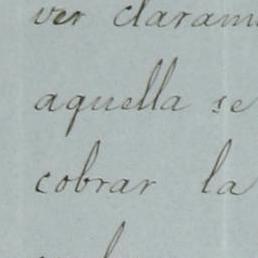 ver claram
aquella se
cobrar la